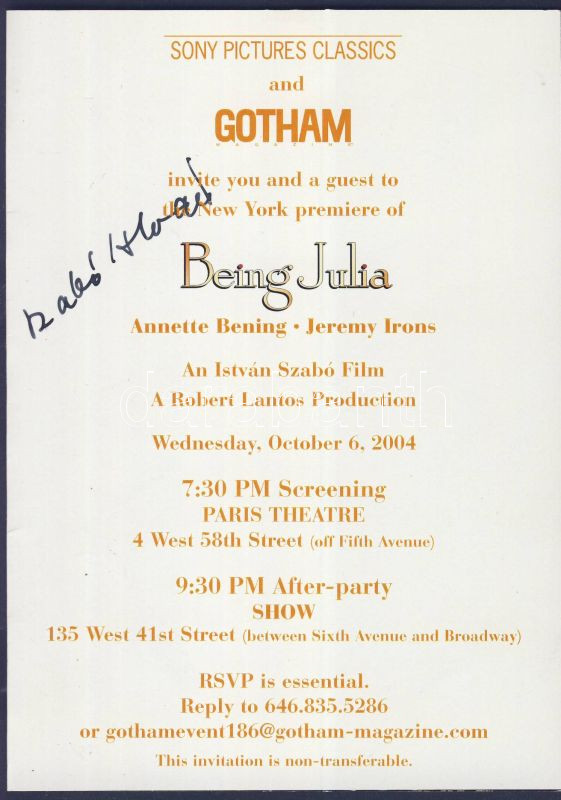 SONY PICTURES CLASSICS
and
GOTHAM
MAGAZINE
invite you and a guest to
the New York premiere of
Szabó István
Being Julia
Annette Bening • Jeremy Irons
An István Szabó Film
A Robert Lantos Production
Wednesday, October 6, 2004
7:30 PM Screening
PARIS THEATRE
4 West 58th Street (off Fifth Avenue)
9:30 PM After-party
SHOW
135 West 41st Street (between Sixth Avenue and Broadway)
RSVP is essential.
Reply to 646.835.5286
or gothamevent186@gotham-magazine.com
This invitation is non-transferable.